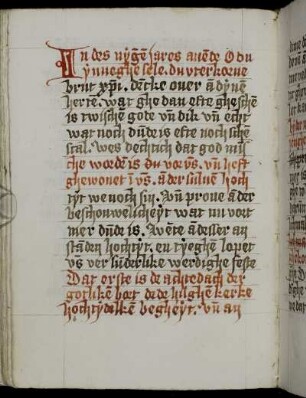 In des nyge jares auede O du
ynneghe sele. du vterkorne
brut xpi. decke ouer a dyne
herte. wat ghe dan efte gheschen
is twischē gote vn dik vn echt
wat noch dude is efte noch schen
schal. wes dechtich dat god mis
che worden is du vn heft
ghewonet i vs. a der suluē hoch
tyt we noch sin. Vn proue a der
beschouwelicheyt wat nu vort
mer dude is. Wēte a desser an
staden hochtyt. en tyeghe lopet
vs ver suderlike werdighe feste
Dat erste is de achtedach der
gotlikē bort de de hilghe kerke
hochtydelkē begheyt. vn an